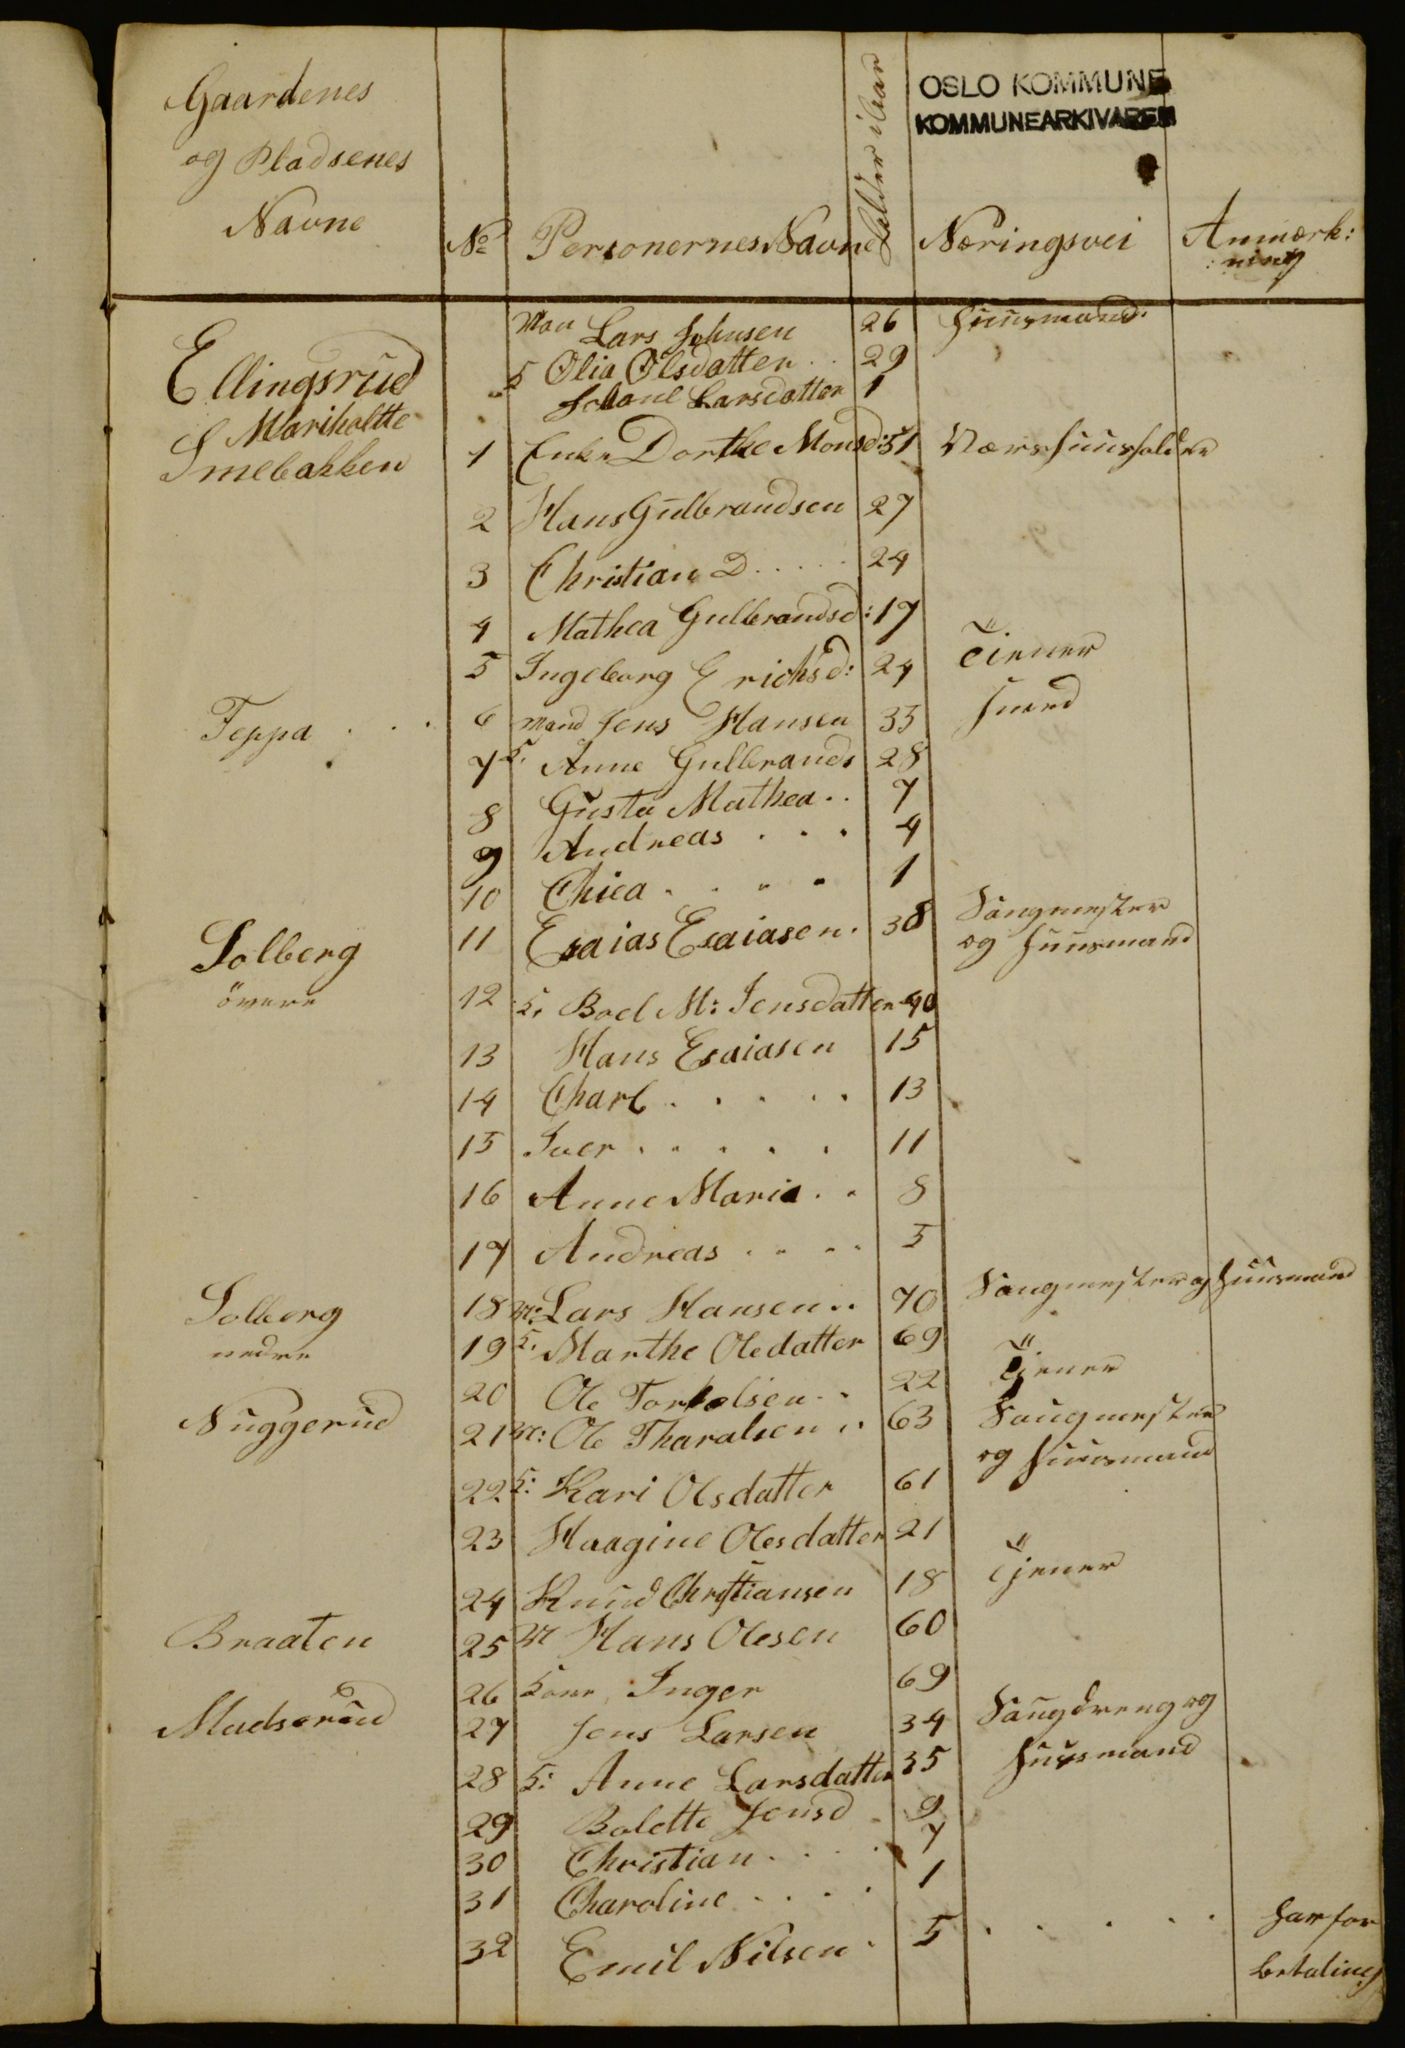 OSLO KOMMUNE
KOMMUNEARKIVAREN
Gaardenes
og Pladsenes
Navne
No
Personernes Navne
Alder i Aar
Næringsvei
Anmærk:
:ning
Man Lars Johnsen 26 Huusmand
Ellingsrud K Olia Olsdatter . . 29
Mariholtte Johane Larsdatter 1
Smebakken 1 Enke Dorthe Monsd: 51 Værshuusholder
2 Hans Gulbrandsen 27
3 Christian D . . . . 24
4 Mathea Gulbrandsd: 17
5 Ingeborg Erichsd: 24 Tiener
Teppa . . . 6 Mand Jens Hansen 33 Smed
7 K. Anne Gulbrands 28
8 Gusta Mathea . . 7
9 Andreas . . . 4
10 . . . . 1
Solberg 11 Esaias Esaiasen . 38 Saugmester
og Huusmand
övere 12 K. Boel M: Jensdatter 40
13 Hans Esaiasen 15
14 Charl . . . . . 13
15 Iver . . . . . 11
16 Anne Maria . . 8
17 Andreas . . . . 5
Solberg 18 M: Lars Hansen . . 70 Saugmester og Huusmand
nedre 19 K. Marthe Oledatter 69
20 Ole Torkelsen . . 22 Tjener
Nuggerud 21 M: Ole Tharalsen . . 63 Saugmester
og Huusmand
22 K: Kari Olsdatter 61
23 Haagine Olesdatter 21
24 Knud Christiansen 18 Tjener
Braaten 25 M Hans Olesen 60
26 Kone Inger 69
Madserud 27 Jens Larsen 34 Saugdreng og
Huusmand
28 K: Anne Larsdatter 35
29 Bolette Jensd . 9
30 Christian . . . . 7
31 Charoline . . . . 1
32 Emil Nilsen . 5 . . . . . her for
betaling